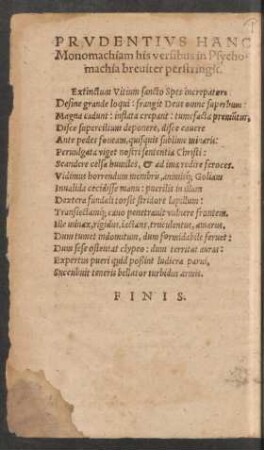 PRVDENTIVS HANC
Monomachiam his versibus in Psycho
machia breuiter perstringit.
Extinctum Vitium sancto Spes increpat ore
Desine grande loqui: frangit Deus omne superbum:
Magna cadunt: inflata crepant: tumefacta premūtur,
Disce supercilium deponere, disce cauere
Ante pedes foueam, quisquis sublime minaris:
Peruulgata viget nostri sententia Christi:
Scandere celsa humiles, & ad ima redire feroces.
Vidimus horrendum membris, animisq; Goliam
Inualida cecidisse manu: puerilis in illum
Dextera fundali torsit stridore lapillum:
Traiectamq; cauo penetrauit vulnere frontem.
Ille minax, rigidus, iactans, truculentus, amarus,
Dum tumet indomitum, dum formidabile feruet:
Dum sese ostentat clypeo: dum territat auras:
Expertus pueri quid possint ludicra parui,
Succubuit teneris bellator turbidus annis.
FINIS.